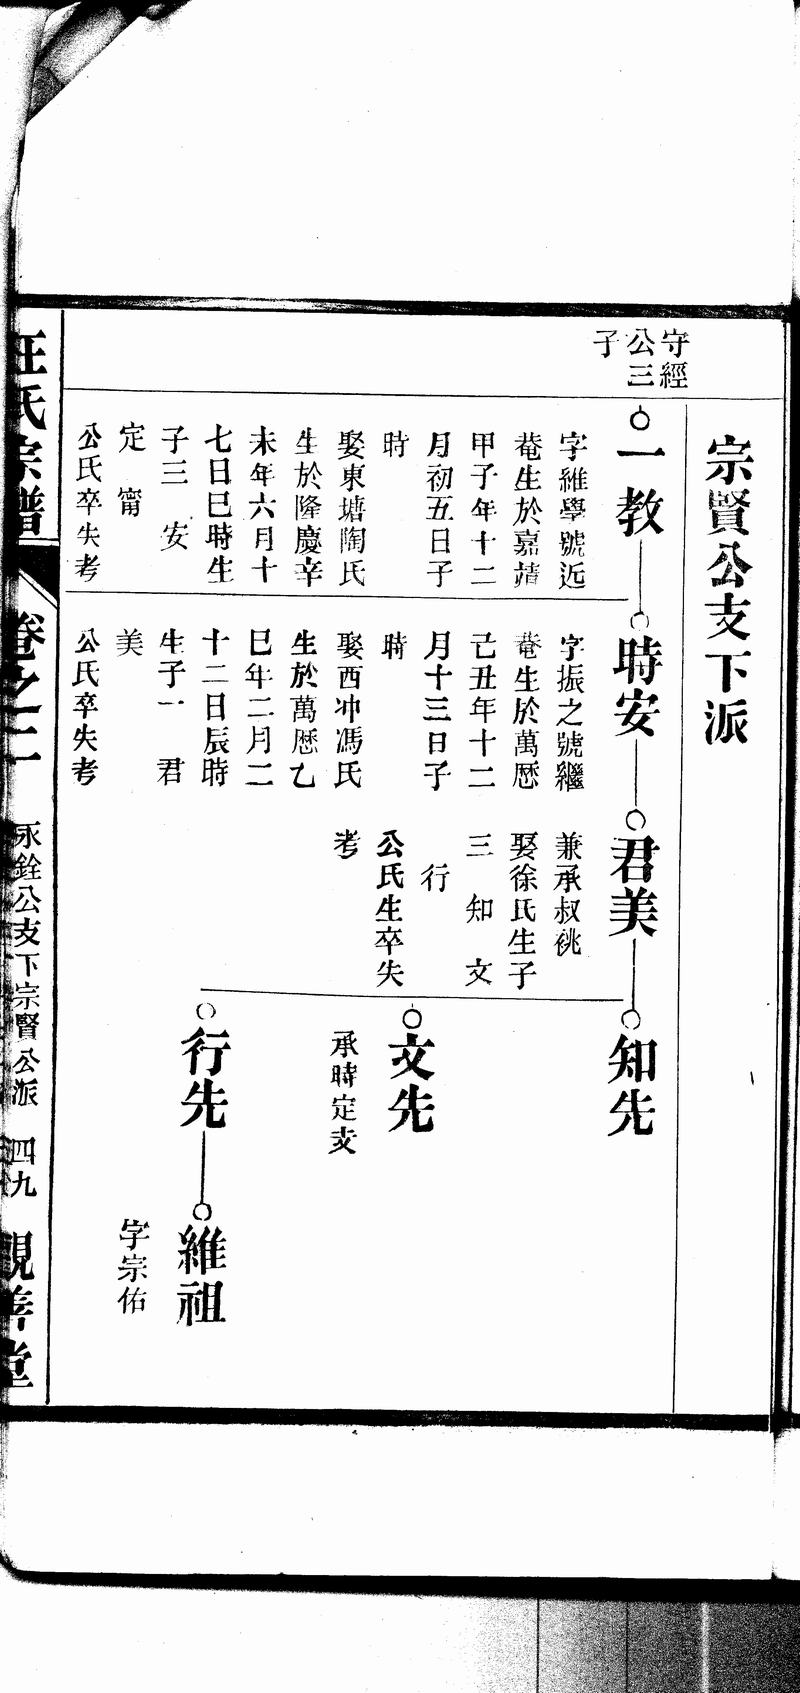 宗賢公支下派
守經
公三
子
一教
字維學號近
菴生於嘉靖
甲子年十二
月初五日子
時
娶東塘陶氏
生於隆慶辛
未年六月十
七日巳時生
子三　安
定　甯
公氏卒失考
時安
字振之號繼
菴生於萬歷
己丑年十二
月十三日子
時
娶西冲馮氏
生於萬歷乙
巳年二月二
十二日辰時
生子一　君
美
公氏卒失考
君美
兼承叔祧
娶徐氏生子
三　知　文
行
公氏生卒失
考
知先
文先
承時定支
行先
維祖
字宗佑
汪氏宗譜
卷之二
永銓公支下宗賢公派　四九
觀善堂